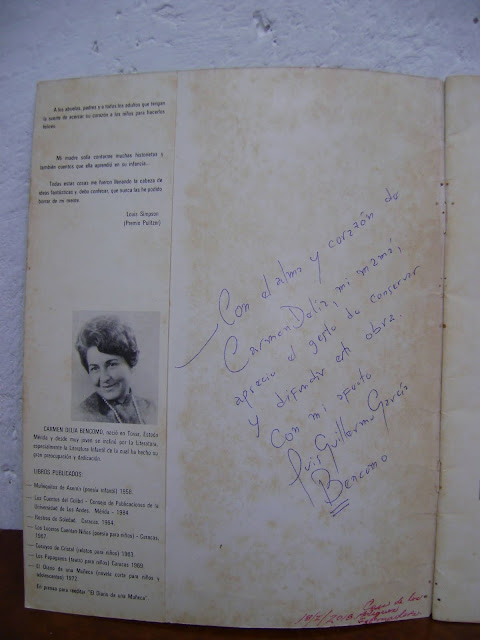 A los abuelos, padres y a todos los adultos que tengan
la suerte de acercar su corazón a los niños para hacerlos
felices.
Mi madre solía contarme muchas historietas y
también cuentos que ella aprendió en su infancia...
Todas estas cosas me fueron llenando la cabeza de
ideas fantásticas y, debo confesar, que nunca las he podido
borrar de mi mente.
Louis Simpson
(Premio Pulitzer)
CARMEN DELIA BENCOMO, nació en Tovar, Estado
Mérida y desde muy joven se inclinó por la Literatura,
especialmente la Literatura Infantil de la cual ha hecho su
gran preocupación y dedicación.
LIBROS PUBLICADOS:
— Muñequitos de Aserrín (poesía infantil) 1958.
— Los Cuentos del Colibrí - Consejo de Publicaciones de la
Universidad de Los Andes. Mérida - 1984.
de Soledad. Caracas. 1964.
— Los Luceros Cuentan Niños (poesía para niños) - Caracas,
1967.
— Cocuyos de Cristal (relatos para niños)
— Los Papagayos (teatro para niños) Caracas 1969.
— El Diario de una Muñeca (novela corta para niños y
adolescentes) 1972.
En prensa para reeditar "El Diario de una Muñeca".
Con el alma y corazón de
Carmen Delia, mi mamá,
aprecio el gesto de conservar
y difundir esta obra.
Con mi afecto
Luis Guillermo García
Bencomo